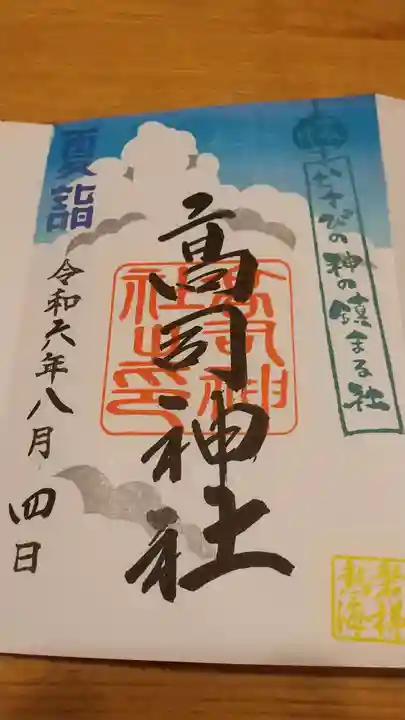 むすびの神の鎮まる社
高司神社
高司神
社之印
夏詣
令和六年八月四日